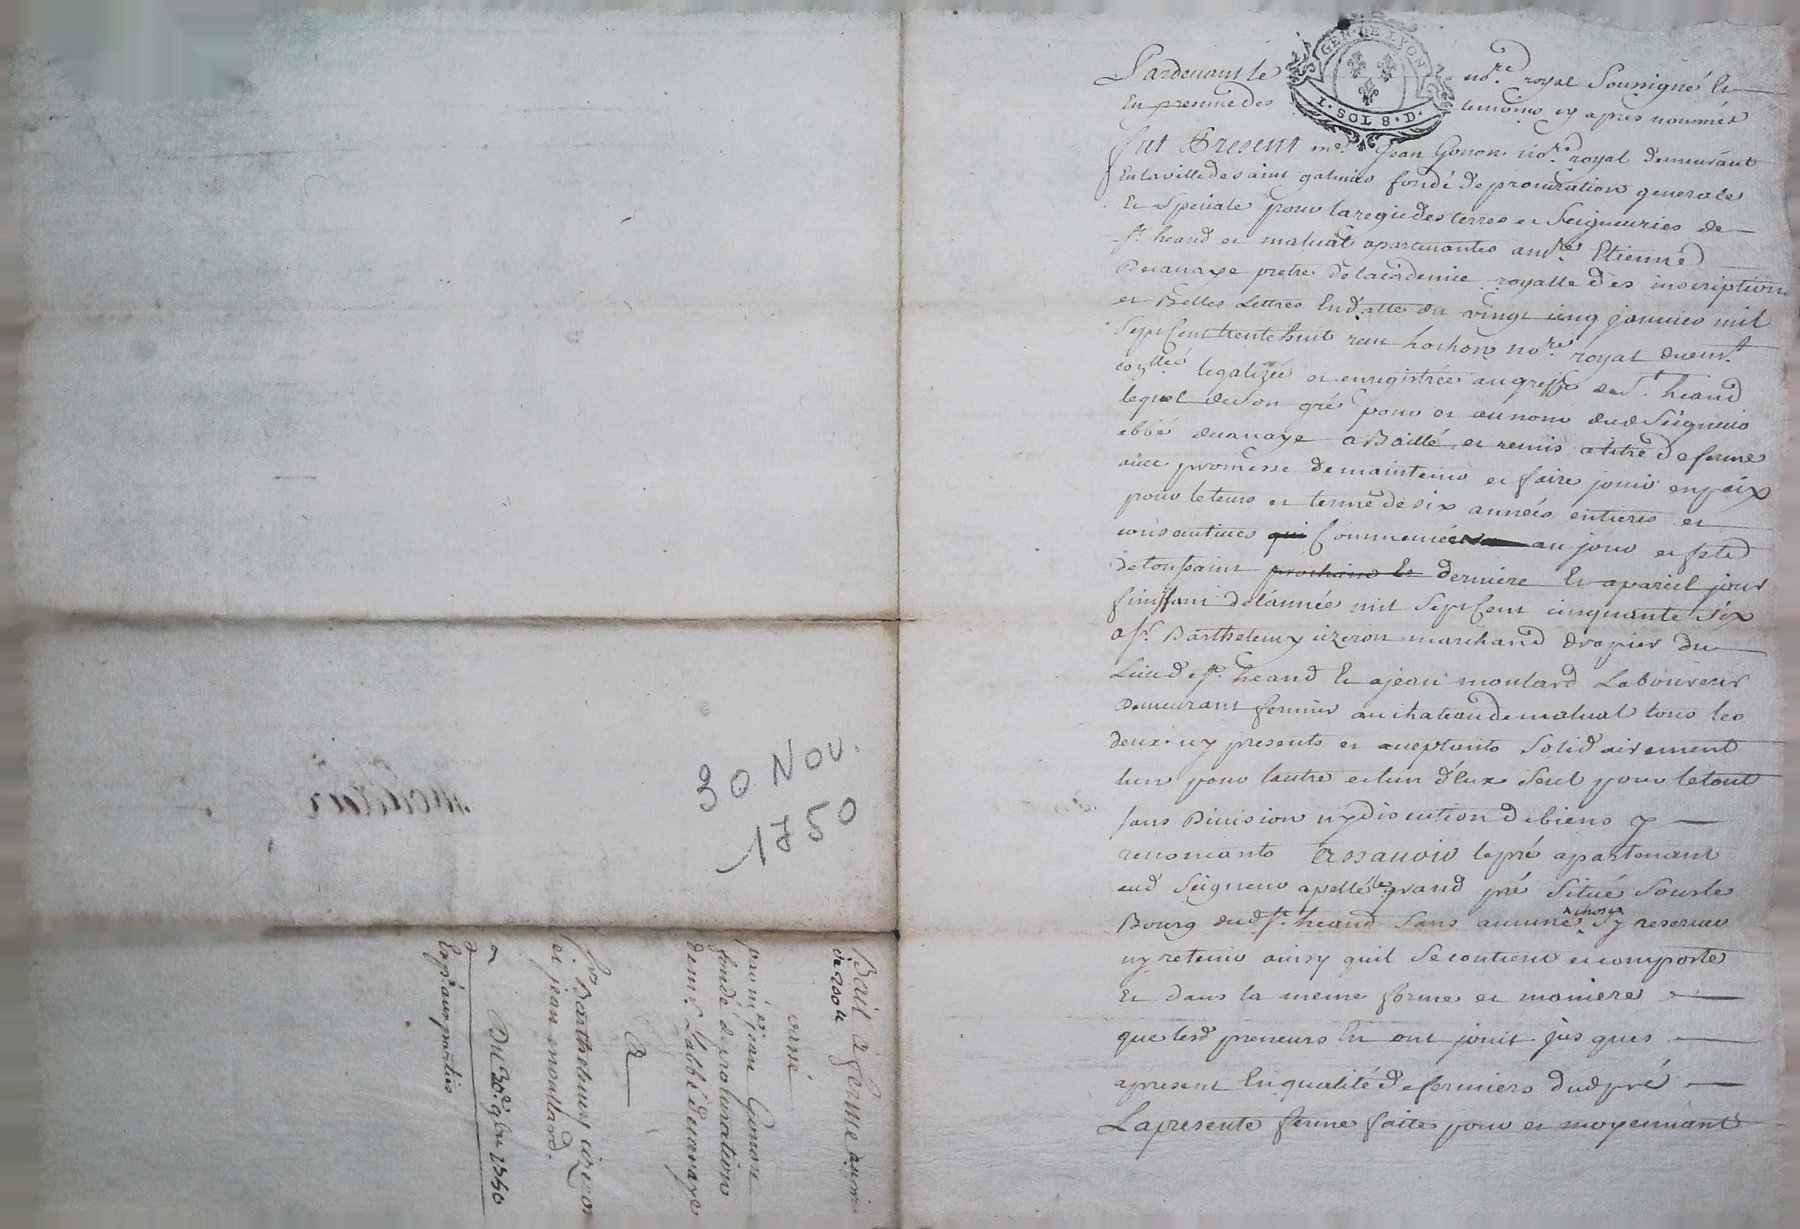 GEN · DE LYON
I · SOL 8 · D ·
Pardevant le no.re royal Soussigné Et
En presence des temoins cy apres nommés
fut Present me. Jean Gonon no.re royal demeurant
En la ville de saint galmier fondé de procuration generale
Et Speciale pour la regie des terres et Seigneuries de
St. heand et malval apartenantes a mre. Etienne
Decanaye pretre de lacademie royalle des inscriptions
et Belles Lettres En datte du vingt cinq janvier mil
Sept Cent trente huit reçu hochon no.re royal
legalizée et enregistrée au greffe de St. heand
lequel de Son gré pour et au nom dud Seigneur
abbé decanaye a Baillé et remis a titre de ferme
avec promesse de maintenir et faire jouir en paix
pour le tems et terme de six années entieres et
consecutives qui Commencées au jour et feste
de toussaint prochain Et derniere Et a pareil jour
finissant de l'année mil Sept Cent cinquante Six
a Sr. Barthelemy cizeron marchand drapier du
Lieu de St. heand Et a jean moulard Laboureur
Demeurant fermier au chateau de malval tous les
deux icy presents et aceptants Solidairement
lun pour lautre et lun d'Eux Seul pour le tout
sans Division ny discution de biens y
renonceants Assavoir le pré apartenant
aud Seigneur apellé le grand pré Situé Sous le
Bourg dud St. heand Sans aucune chose y reserver
ny retenir ainsy quil Se contient et comporte
Et dans la meme forme et maniere
que lesd preneurs En ont jouit jus ques
apresent En qualité de fermiers dud pré
La presente ferme faite pour et moyennant
30 Nov.
1750
Bail a ferme au prix
de 200 tt
passé
par me jean Gonon
fondé de procuration
de mr. L'abbé decanaye
A
Sr Barthelemy cizeron
et jean moullard.
Du 30e. 9bre 1750